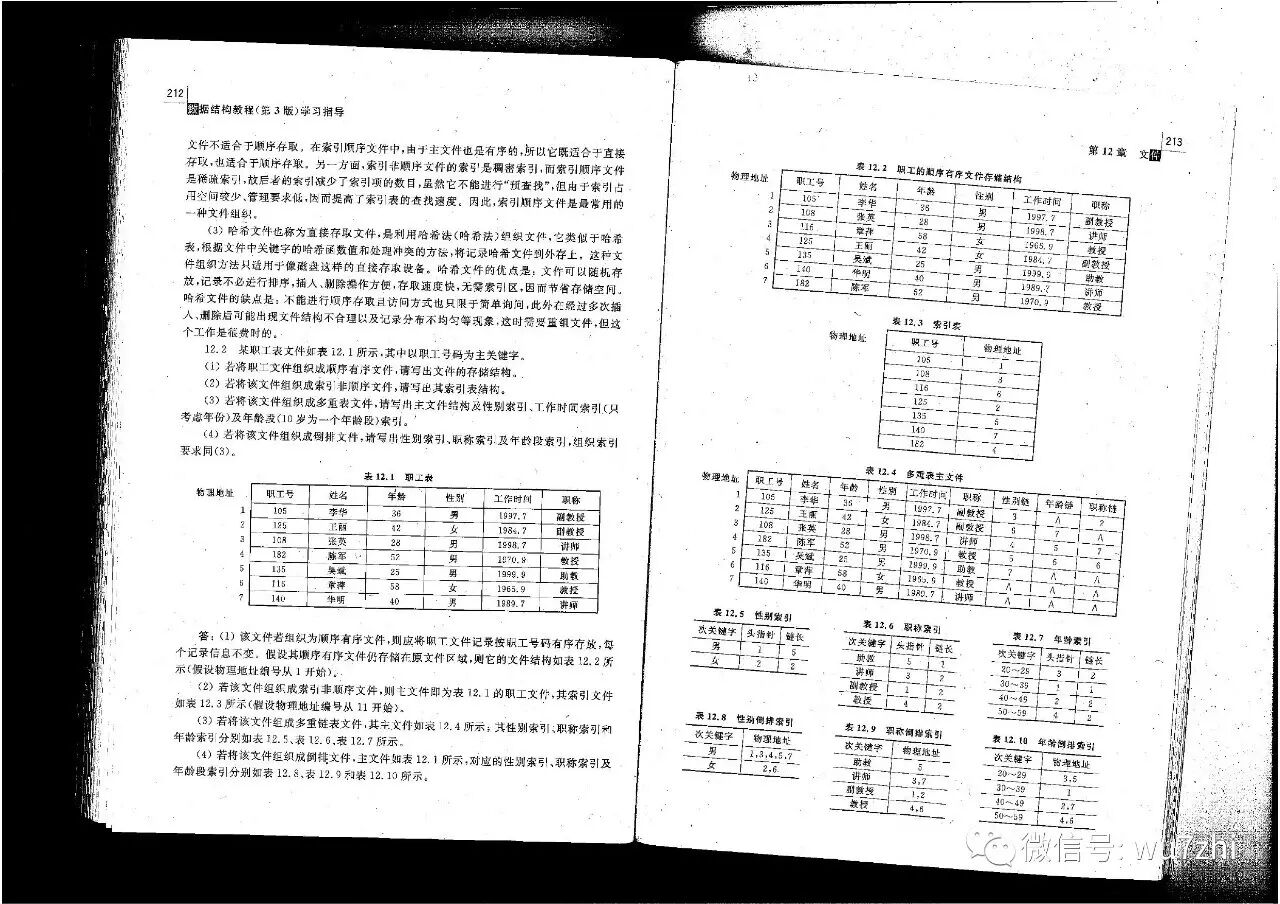 212
数据结构教程(第3版)学习指导
文件不适合于顺序存取。在索引顺序文件中,由于主文件也是有序的,所以它既适合于直接
存取,也适合于顺序存取。另一方面,索引非顺序文件的索引是稠密索引,而索引顺序文件
是稀疏索引,故后者的索引减少了索引项的数目,虽然它不能进行“预查找”,但由于索引占
用空间较少、管理要求低,因而提高了索引表的查找速度。因此,索引顺序文件是最常用的
一种文件组织。
(3) 哈希文件也称为直接存取文件,是利用哈希法(哈希法)组织文件,它类似于哈希
表,根据文件中关键字的哈希函数值和处理冲突的方法,将记录哈希文件到外存上。这种文
件组织方法只适用于像磁盘这样的直接存取设备。哈希文件的优点是:文件可以随机存
放,记录不必进行排序,插入、删除操作方便,存取速度快,无需索引区,因而节省存储空间。
哈希文件的缺点是:不能进行顺序存取且访问方式也只限于简单询问,此外在经过多次插
入、删除后可能出现文件结构不合理以及记录分布不均匀等现象,这时需要重组文件,但这
个工作是很费时的。
12.2 某职工表文件如表12.1所示,其中以职工号码为主关键字。
(1) 若将职工文件组织成顺序有序文件,请写出文件的存储结构。
(2) 若将该文件组织成索引非顺序文件,请写出其索引表结构。
(3) 若将该文件组织成多重表文件,请写出主文件结构及性别索引、工作时间索引(只
考虑年份)及年龄段(10岁为一个年龄段)索引。
(4) 若将该文件组织成倒排文件,请写出性别索引、职称索引及年龄段索引,组织索引
要求同(3)。
表 12.1 职工表
物理地址 职工号 姓名 年龄 性别 工作时间 职称
1 105 李华 36 男 1997.7 副教授
2 125 王丽 42 女 1984.7 副教授
3 108 张英 28 男 1998.7 讲师
4 182 陈军 52 男 1970.9 教授
5 135 吴斌 25 男 1999.9 助教
6 116 章萍 58 女 1965.9 教授
7 140 华明 40 男 1989.7 讲师
答:(1) 该文件若组织为顺序有序文件,则应将职工文件记录按职工号码有序存放,每
个记录信息不变。假设其顺序有序文件仍存储在原文件区域,则它的文件结构如表12.2所
示(假设物理地址编号从1开始)。
(2) 若该文件组织成索引非顺序文件,则主文件即为表12.1的职工文件,其索引文件
如表12.3所示(假设物理地址编号从11开始)。
(3) 若将该文件组成多重链表文件,其主文件如表12.4所示;其性别索引、职称索引和
年龄索引分别如表12.5、表12.6、表12.7所示。
(4) 若将该文件组织成倒排文件,主文件如表12.1所示,对应的性别索引、职称索引及
年龄段索引分别如表12.8、表12.9和表12.10所示。
第12章 文件
213
表 12.2 职工的顺序有序文件存储结构
物理地址 职工号 姓名 年龄 性别 工作时间 职称
1 105 李华 36 男 1997.7 副教授
2 108 张英 28 男 1998.7 讲师
3 116 章萍 58 女 1965.9 教授
4 125 王丽 42 女 1984.7 副教授
5 135 吴斌 25 男 1999.9 助教
6 140 华明 40 男 1989.7 讲师
7 182 陈军 52 男 1970.9 教授
表 12.3 索引表
物理地址 职工号 物理地址
105 1
108 3
116 6
125 2
135 5
140 7
182 4
表 12.4 多重表主文件
物理地址 职工号 姓名 年龄 性别 工作时间 职称 性别链 年龄链 职称链
1 105 李华 36 男 1997.7 副教授 3 ∧ 2
2 125 王丽 42 女 1984.7 副教授 6 7 ∧
3 108 张英 28 男 1998.7 讲师 4 5 7
4 182 陈军 52 男 1970.9 教授 5 6 6
5 135 吴斌 25 男 1999.9 助教 ∧ ∧
6 116 章萍 58 女 1965.9 教授 ∧ ∧ ∧
7 140 华明 40 男 1989.7 讲师 ∧ ∧ ∧
表 12.5 性别索引
次关键字 头指针 链长
男 1 5
女 2 2
表 12.6 职称索引
次关键字 头指针 链长
助教 5 1
讲师 3 2
副教授 1 2
教授 4 2
表 12.7 年龄索引
次关键字 头指针 链长
20～29 3 2
30～39 1 1
40～49 2 2
50～59 4 2
表 12.8 性别倒排索引
次关键字 物理地址
男 1,3,4,5,7
女 2,6
表 12.9 职称倒排索引
次关键字 物理地址
助教 5
讲师 3,7
副教授 1,2
教授 4,6
表 12.10 年龄倒排索引
次关键字 物理地址
20～29 3,5
30～39 1
40～49 2,7
50～59 4,6
微信号: wurzhi